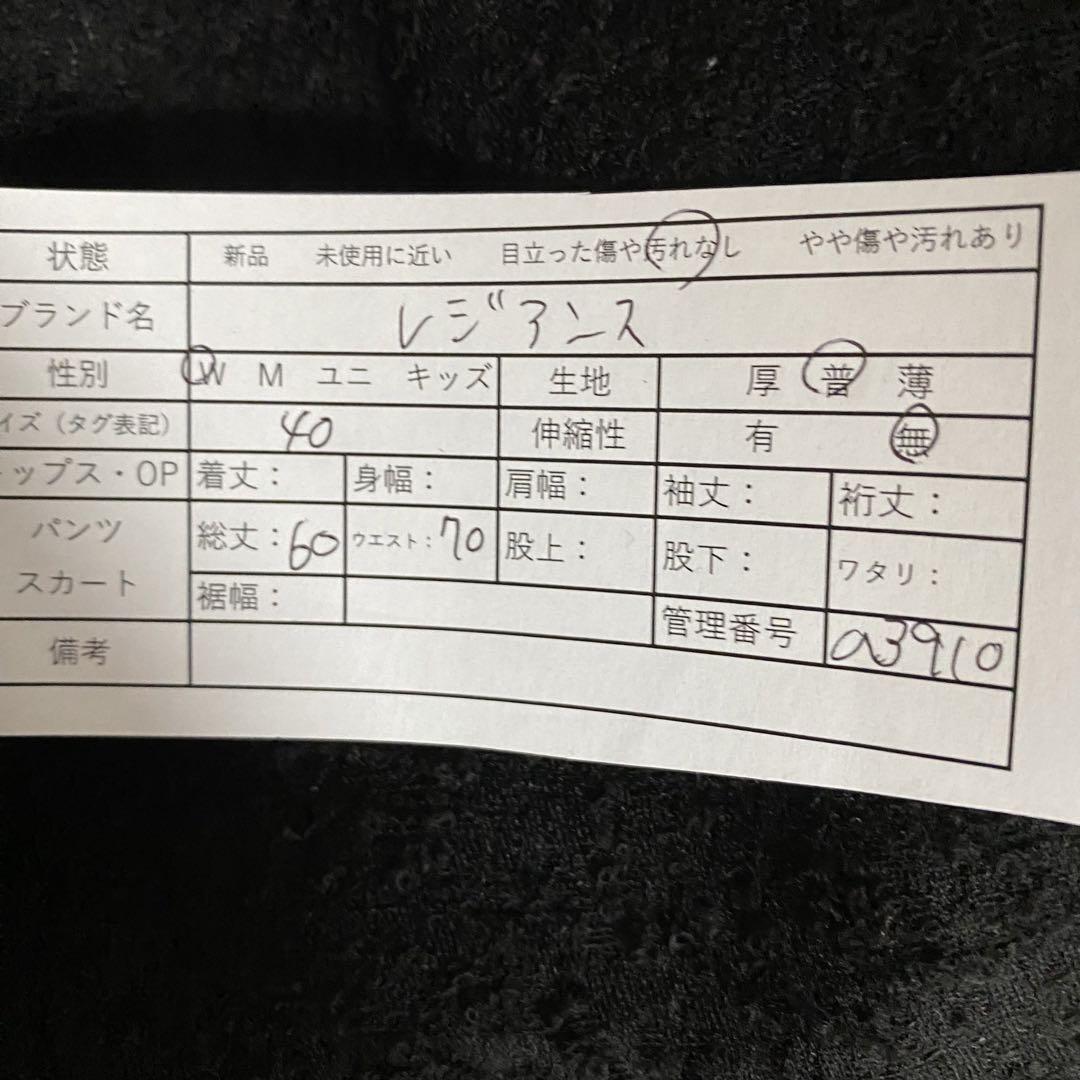 状態 新品 未使用に近い 目立った傷や汚れなし やや傷や汚れあり
ブランド名 レジアンス
性別 W M ユニ キッズ 生地 厚 普 薄
イズ（タグ表記） 40 伸縮性 有 無
ップス・OP 着丈： 身幅： 肩幅： 袖丈： 裄丈：
パンツ 総丈：60 ウエスト：70 股上： 股下： ワタリ：
スカート 裾幅： 管理番号 a3910
備考